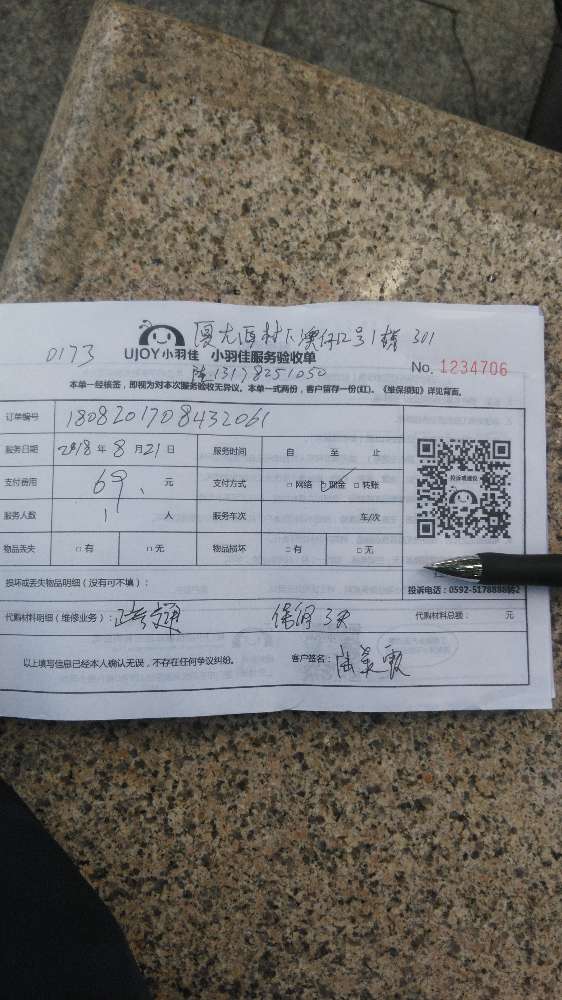 0173
厦大西村下澳仔12号1楼 301
UJOY小羽佳 小羽佳服务验收单
陆 13178251050
No. 1234706
本单一经核签，即视为对本次服务验收无异议。本单一式两份，客户留存一份(红)。《维保须知》详见背面。
订单编号 1808201708432061
服务日期 2018 年 8 月 21 日 服务时间 自 至 止
支付费用 69、 元 支付方式 □ 网络 □ 现金 □ 转账
服务人数 1 人 服务车次 车/次
投诉或建议
物品丢失 □ 有 □ 无 物品损坏 □ 有 □ 无
损坏或丢失物品明细（没有可不填）：
投诉电话：0592-5178888转2
代购材料明细（维修业务）： 保修3天 代购材料总额： 元
以上填写信息已经本人确认无误，不存在任何争议纠纷。 客户签名：陆美霞